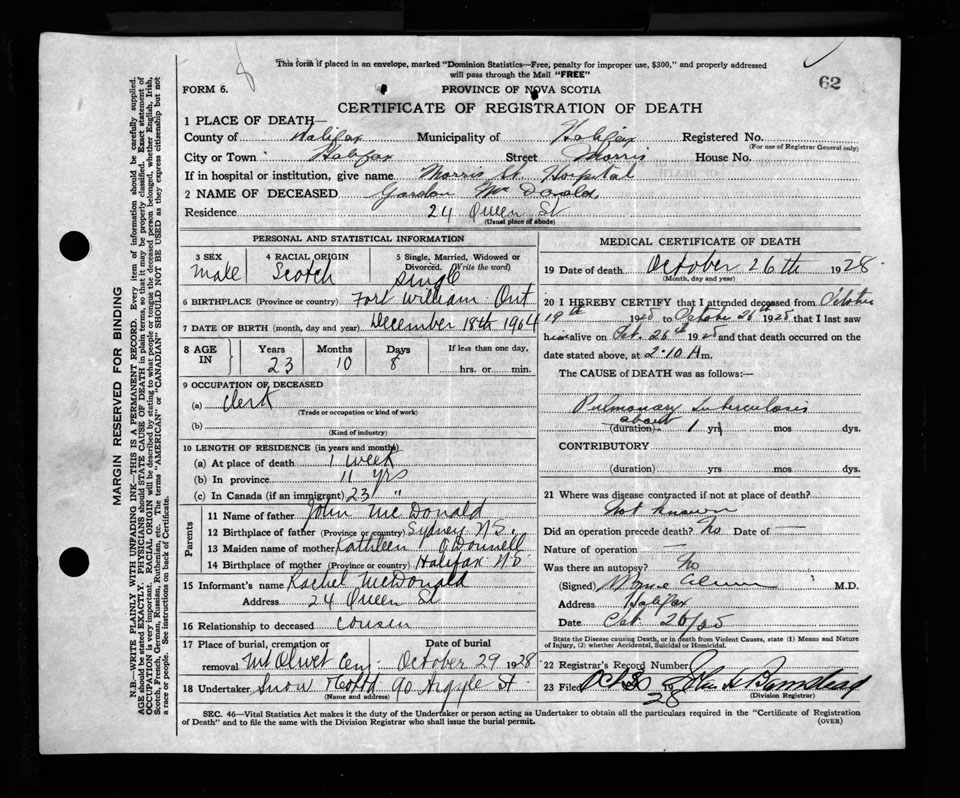 This form if placed in an envelope, marked "Dominion Statistics—Free, penalty for improper use, $300," and properly addressed
will pass through the Mail "FREE"
62
FORM 6.
PROVINCE OF NOVA SCOTIA
CERTIFICATE OF REGISTRATION OF DEATH
1 PLACE OF DEATH—
County of Halifax Municipality of Halifax Registered No.
(For use of Registrar General only)
City or Town Halifax Street Morris House No.
If in hospital or institution, give name Morris St. Hospital
2 NAME OF DECEASED Gordon Mc Donald
Residence 24 Queen St
(Usual place of abode)
PERSONAL AND STATISTICAL INFORMATION
3 SEX
Male
4 RACIAL ORIGIN
Scotch
5 Single, Married, Widowed or
Divorced. (Write the word)
Single
6 BIRTHPLACE (Province or country) Fort William Ont
7 DATE OF BIRTH (month, day and year) December 18th 1904
8 AGE IN
Years Months Days If less than one day,
23 10 8 hrs. or min.
9 OCCUPATION OF DECEASED
(a) Clerk
(Trade or occupation or kind of work)
(b)
(Kind of industry)
10 LENGTH OF RESIDENCE (in years and months)
(a) At place of death 1 week
(b) In province 11 yrs
(c) In Canada (if an immigrant) 23 "
Parents
11 Name of father John McDonald
12 Birthplace of father (Province or country) Sydney N.S.
13 Maiden name of mother Kathleen O'Donnell
14 Birthplace of mother (Province or country) Halifax NS
15 Informant's name Rachel McDonald
Address 24 Queen St
16 Relationship to deceased cousin
17 Place of burial, cremation or Date of burial
removal Mt Olivet Cem October 29 1928
18 Undertaker Snow 90 Argyle St
(Name and address)
MEDICAL CERTIFICATE OF DEATH
19 Date of death October 26th 1928.
(Month, day and year)
20 I HEREBY CERTIFY that I attended deceased from October
19th 1928 to October 26th 1928 that I last saw
him alive on Oct. 26th 1928 and that death occurred on the
date stated above, at 2.10 A.m.
The CAUSE of DEATH was as follows:—
Pulmonary Tuberculosis
about
(duration) 1 yrs mos dys.
CONTRIBUTORY
(duration) yrs mos dys.
21 Where was disease contracted if not at place of death?
Not known
Did an operation precede death? No Date of —
Nature of operation —
Was there an autopsy? No
(Signed) M.D.
Address Halifax
Date Oct 26/28
State the Disease causing Death, or in death from Violent Causes, state (1) Means and Nature
of Injury, (2) whether Accidental, Suicidal or Homicidal.
22 Registrar's Record Number
23 Filed Oct 30 1928
(Division Registrar)
SEC. 46—Vital Statistics Act makes it the duty of the Undertaker or person acting as Undertaker to obtain all the particulars required in the "Certificate of Registration
of Death" and to file the same with the Division Registrar who shall issue the burial permit.
(OVER)
MARGIN RESERVED FOR BINDING
N.B.—WRITE PLAINLY WITH UNFADING INK—THIS IS A PERMANENT RECORD. Every item of information should be carefully supplied.
AGE should be stated EXACTLY. PHYSICIANS should STATE CAUSE OF DEATH in plain terms, so that it may be properly classified. Exact statement of
OCCUPATION is very important. RACIAL ORIGIN will be described by stating to what people or tongue the deceased person belonged, whether English, Irish,
Scotch, French, German, Russian, Ruthenian, etc. The terms "AMERICAN" or "CANADIAN" SHOULD NOT BE USED as they express citizenship but not
a race or people. See instructions on back of Certificate.